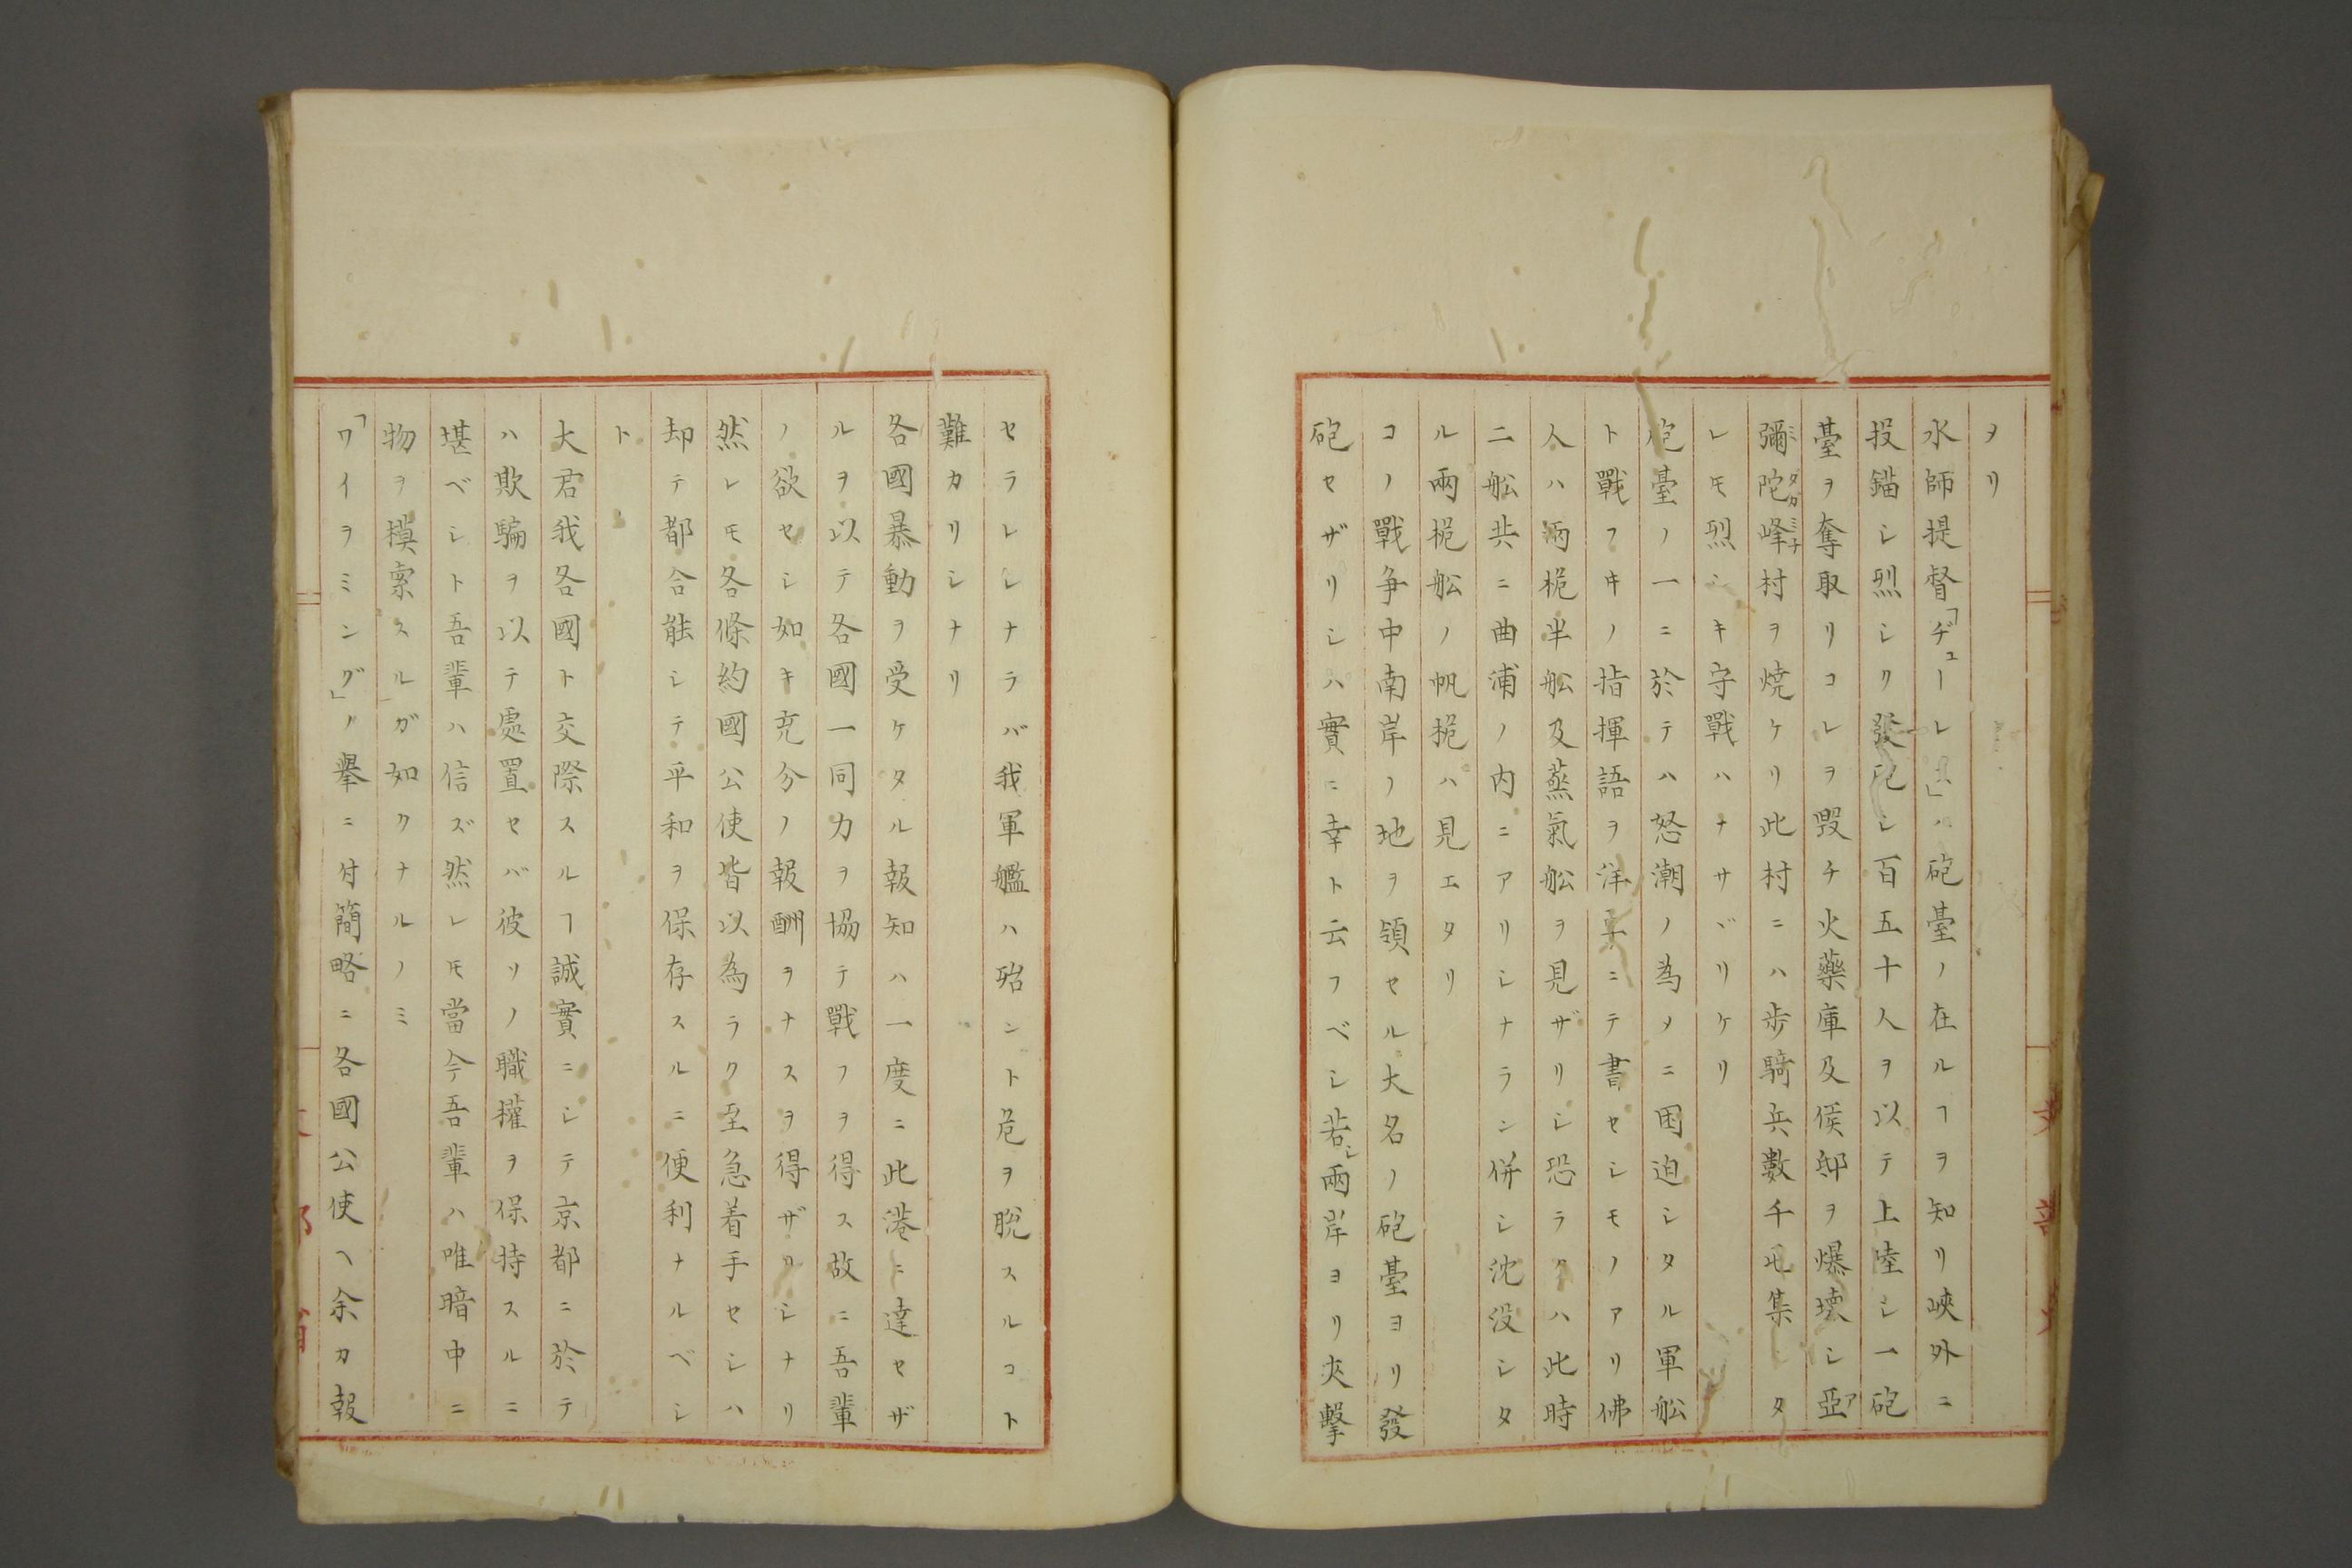 ヲリ
水師提督「ヂューレ」ハ砲臺ノ在ルヿヲ知リ峽外ニ
投錨シ烈シク發砲シ百五十人ヲ以テ上陸シ一砲
臺ヲ奪取リコレヲ毀チ火藥庫及侯邸ヲ爆壊シ亞
彌陀峰村ヲ焼ケリ此村ニハ歩騎兵數千屯集シタ
レ𪜈烈シキ守戰ハナサヾリケリ
砲臺ノ一ニ於テハ怒潮ノ為メニ困迫シタル軍船
ト戰フキノ指揮語ヲ洋字ニテ書セシモノアリ佛
人ハ両桅半舩及蒸氣舩ヲ見ザリシ恐ラクハ此時
二舩共ニ曲浦ノ内ニアリシナラン併シ沈没シタ
ル兩桅舩ノ帆桅ハ見エタリ
コノ戰争中南岸ノ地ヲ領セル大名ノ砲臺ヨリ發
砲セザリシハ實ニ幸ト云フベシ若シ兩岸ヨリ夾撃
セラレシナラバ我軍艦ハ殆ント危ヲ脱スルコト
難カリシナリ
各國暴動ヲ受ケタル報知ハ一度ニ此港ニ達セザ
ルヲ以テ各國一同力ヲ協テ戰フヲ得ス故ニ吾輩
ノ欲セシ如キ充分ノ報酬ヲナスヲ得ザリシナリ
然レ𪜈各條約國公使皆以為ラク至急着手セシハ
却テ都合能シテ平和ヲ保存スルニ便利ナルベシ
ト
大君我各國ト交際スルヿ誠實ニシテ京都ニ於テ
ハ欺騙ヲ以テ處置セバ彼リノ職權ヲ保持スルニ
堪ベシト吾輩ハ信ズ然レ𪜈當今吾輩ハ唯暗中ニ
物ヲ摸索スルガ如クナルノミ
「ワイヲミング」ノ擧ニ付簡略ニ各國公使ヘ余カ報